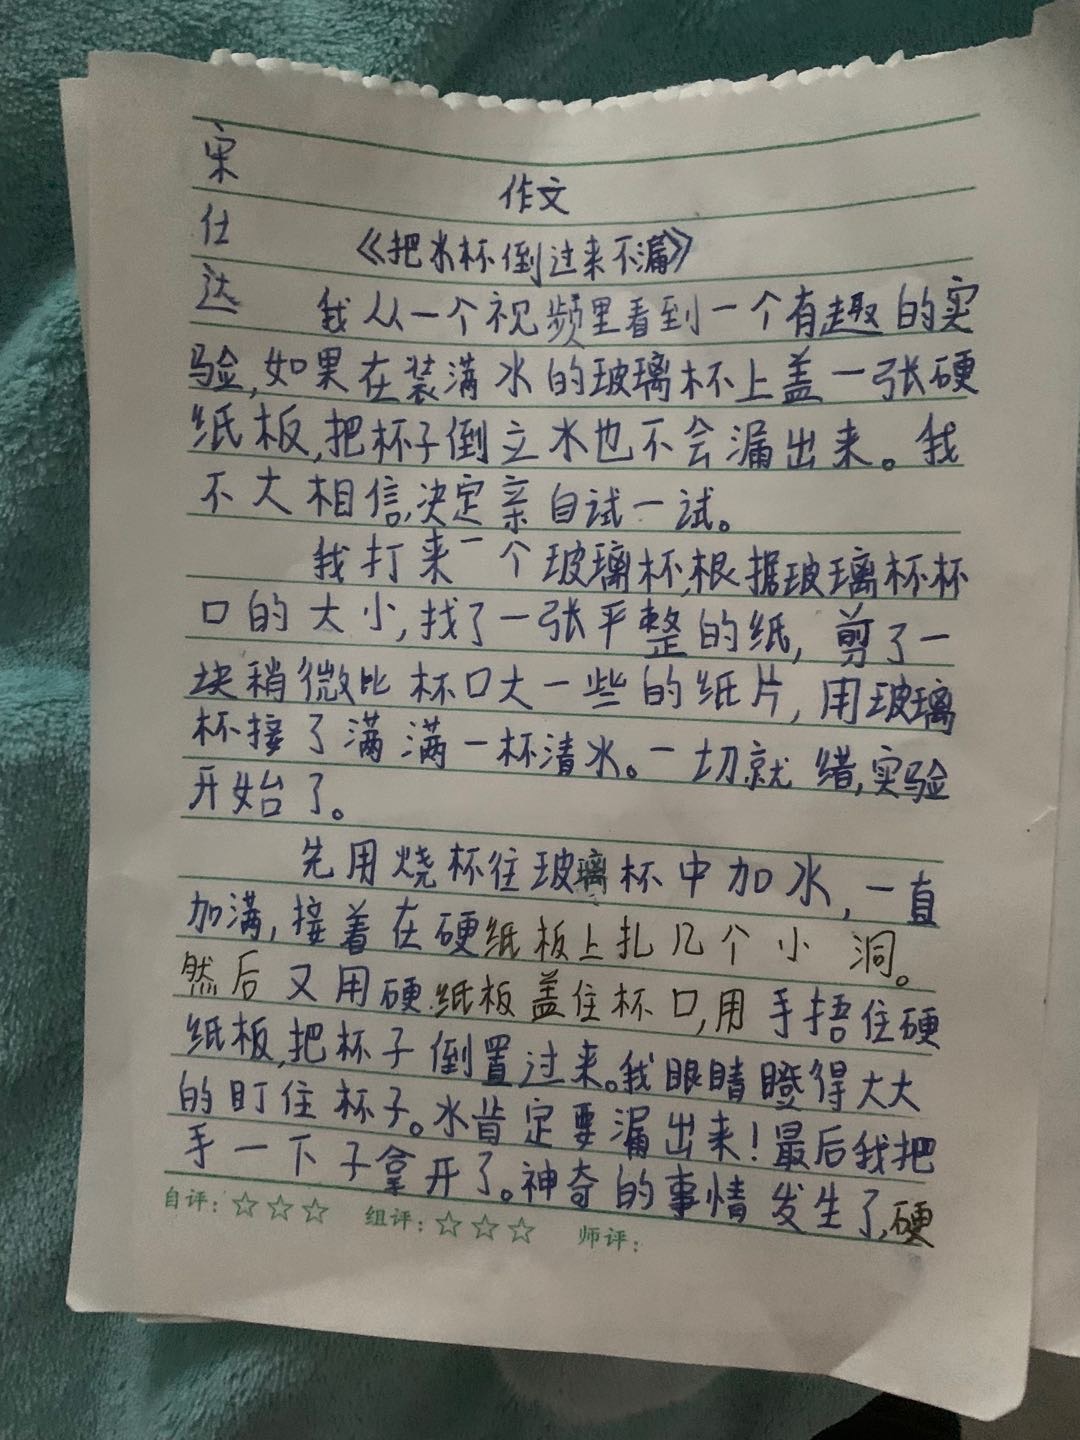 宋仕达
作文
《把水杯倒过来不漏》
我从一个视频里看到一个有趣的实
验,如果在装满水的玻璃杯上盖一张硬
纸板,把杯子倒立水也不会漏出来。我
不大相信,决定亲自试一试。
我打来一个玻璃杯,根据玻璃杯杯
口的大小,找了一张平整的纸,剪了一
块稍微比杯口大一些的纸片,用玻璃
杯接了满满一杯清水。一切就绪,实验
开始了。
先用烧杯往玻璃杯中加水,一直
加满,接着在硬纸板上扎几个小洞。
然后又用硬纸板盖住杯口,用手捂住硬
纸板,把杯子倒置过来。我眼睛瞪得大大
的盯住杯子。水肯定要漏出来!最后我把
手一下子拿开了。神奇的事情发生了,硬
自评:☆☆☆ 组评:☆☆☆ 师评: